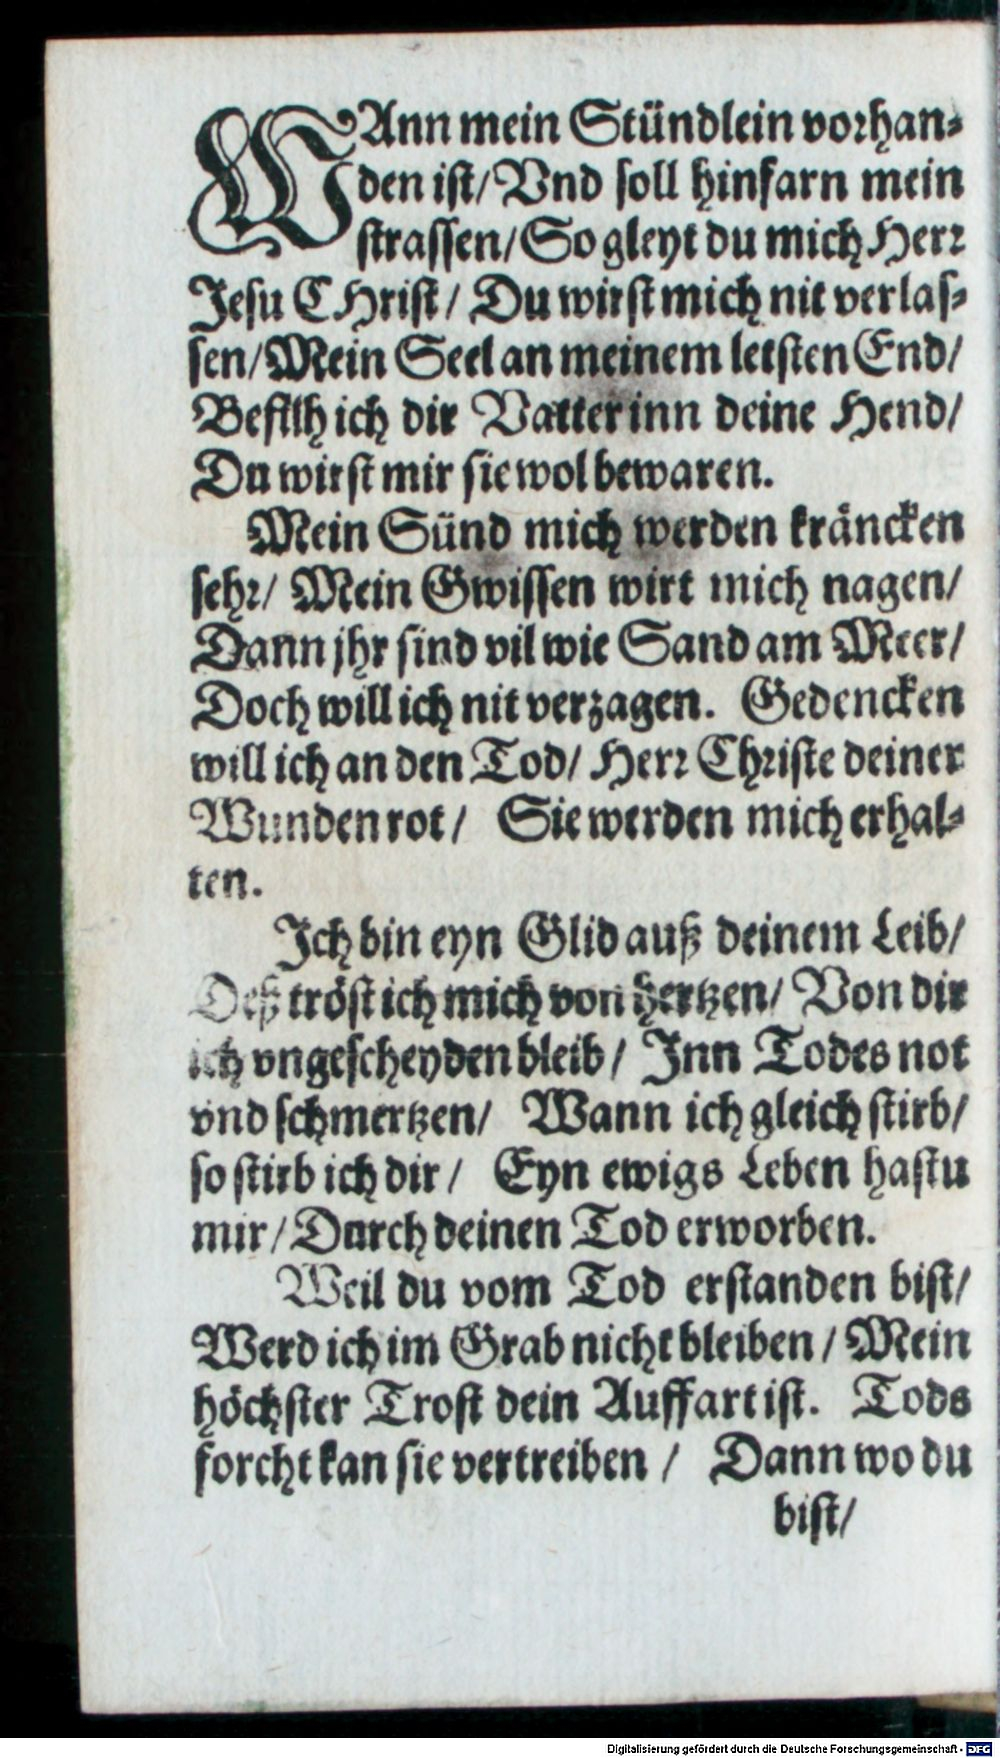 WAnn mein Stündlein vorhan⸗
den ist/ Vnd soll hinfarn mein
strassen/ So gleyt du mich Herr
Jesu CHrist/ Du wirst mich nit verlas⸗
sen/ Mein Seel an meinem letsten End/
Befilh ich dir Vatter inn deine Hend/
Du wirst mir sie wol bewaren.
Mein Sünd mich werden kräncken
sehr/ Mein Gwissen wirt mich nagen/
Dann jhr sind vil wie Sand am Meer/
Doch will ich nit verzagen. Gedencken
will ich an den Tod/ Herr Christe deiner
Wunden rot/ Sie werden mich erhal⸗
ten.
Ich bin eyn Glid auß deinem Leib/
Deß tröst ich mich von hertzen/ Von dir
ich vngescheyden bleib/ Inn Todes not
vnd schmertzen/ Wann ich gleich stirb/
so stirb ich dir/ Eyn ewigs Leben hastu
mir/ Durch deinen Tod erworben.
Weil du vom Tod erstanden bist/
Werd ich im Grab nicht bleiben/ Mein
höchster Trost dein Auffart ist. Tods
forcht kan sie vertreiben/ Dann wo du
bist/
Digitalisierung gefördert durch die Deutsche Forschungsgemeinschaft - DFG